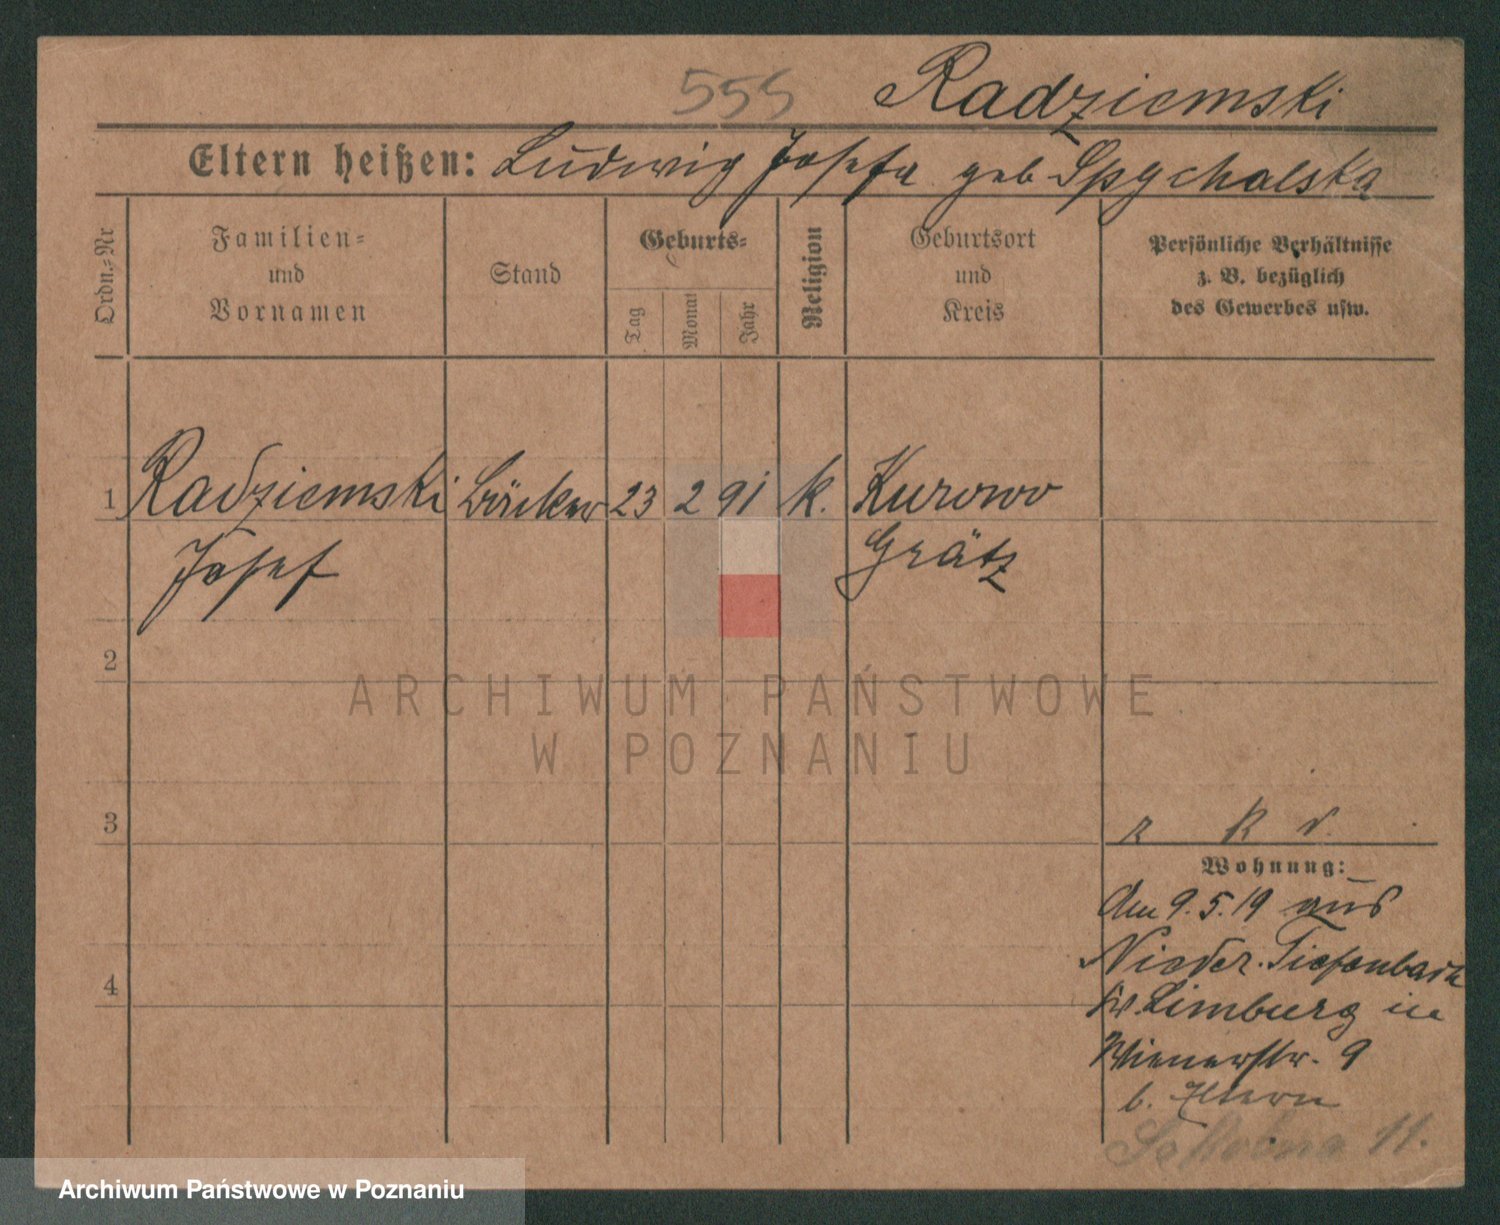 555 Radziemski
Eltern heißen: Ludwig Josefa geb Spychalska
Ordn.-Nr
Familien-
und
Vornamen
Stand
Geburts-
Tag
Monat
Jahr
Religion
Geburtsort
und
Kreis
Persönliche Verhältnisse
z. B. bezüglich
des Gewerbes usw.
1 Radziemski Bäcker 23 2 91 k. Kurowo
Josef Grätz
2
ARCHIWUM PAŃSTWOWE
W POZNANIU
3
r k v.
Wohnung:
Am 9.5.19 aus
Nieder-Tiefenbach
4
Kr. Limburg in
Wienerstr. 9
b. Eltern
11.
Archiwum Państwowe w Poznaniu